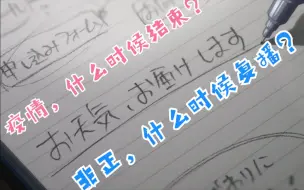 申し込みフォーム
疫情，什么时候结束？
お天気、お届けします
非正，什么时候复播？